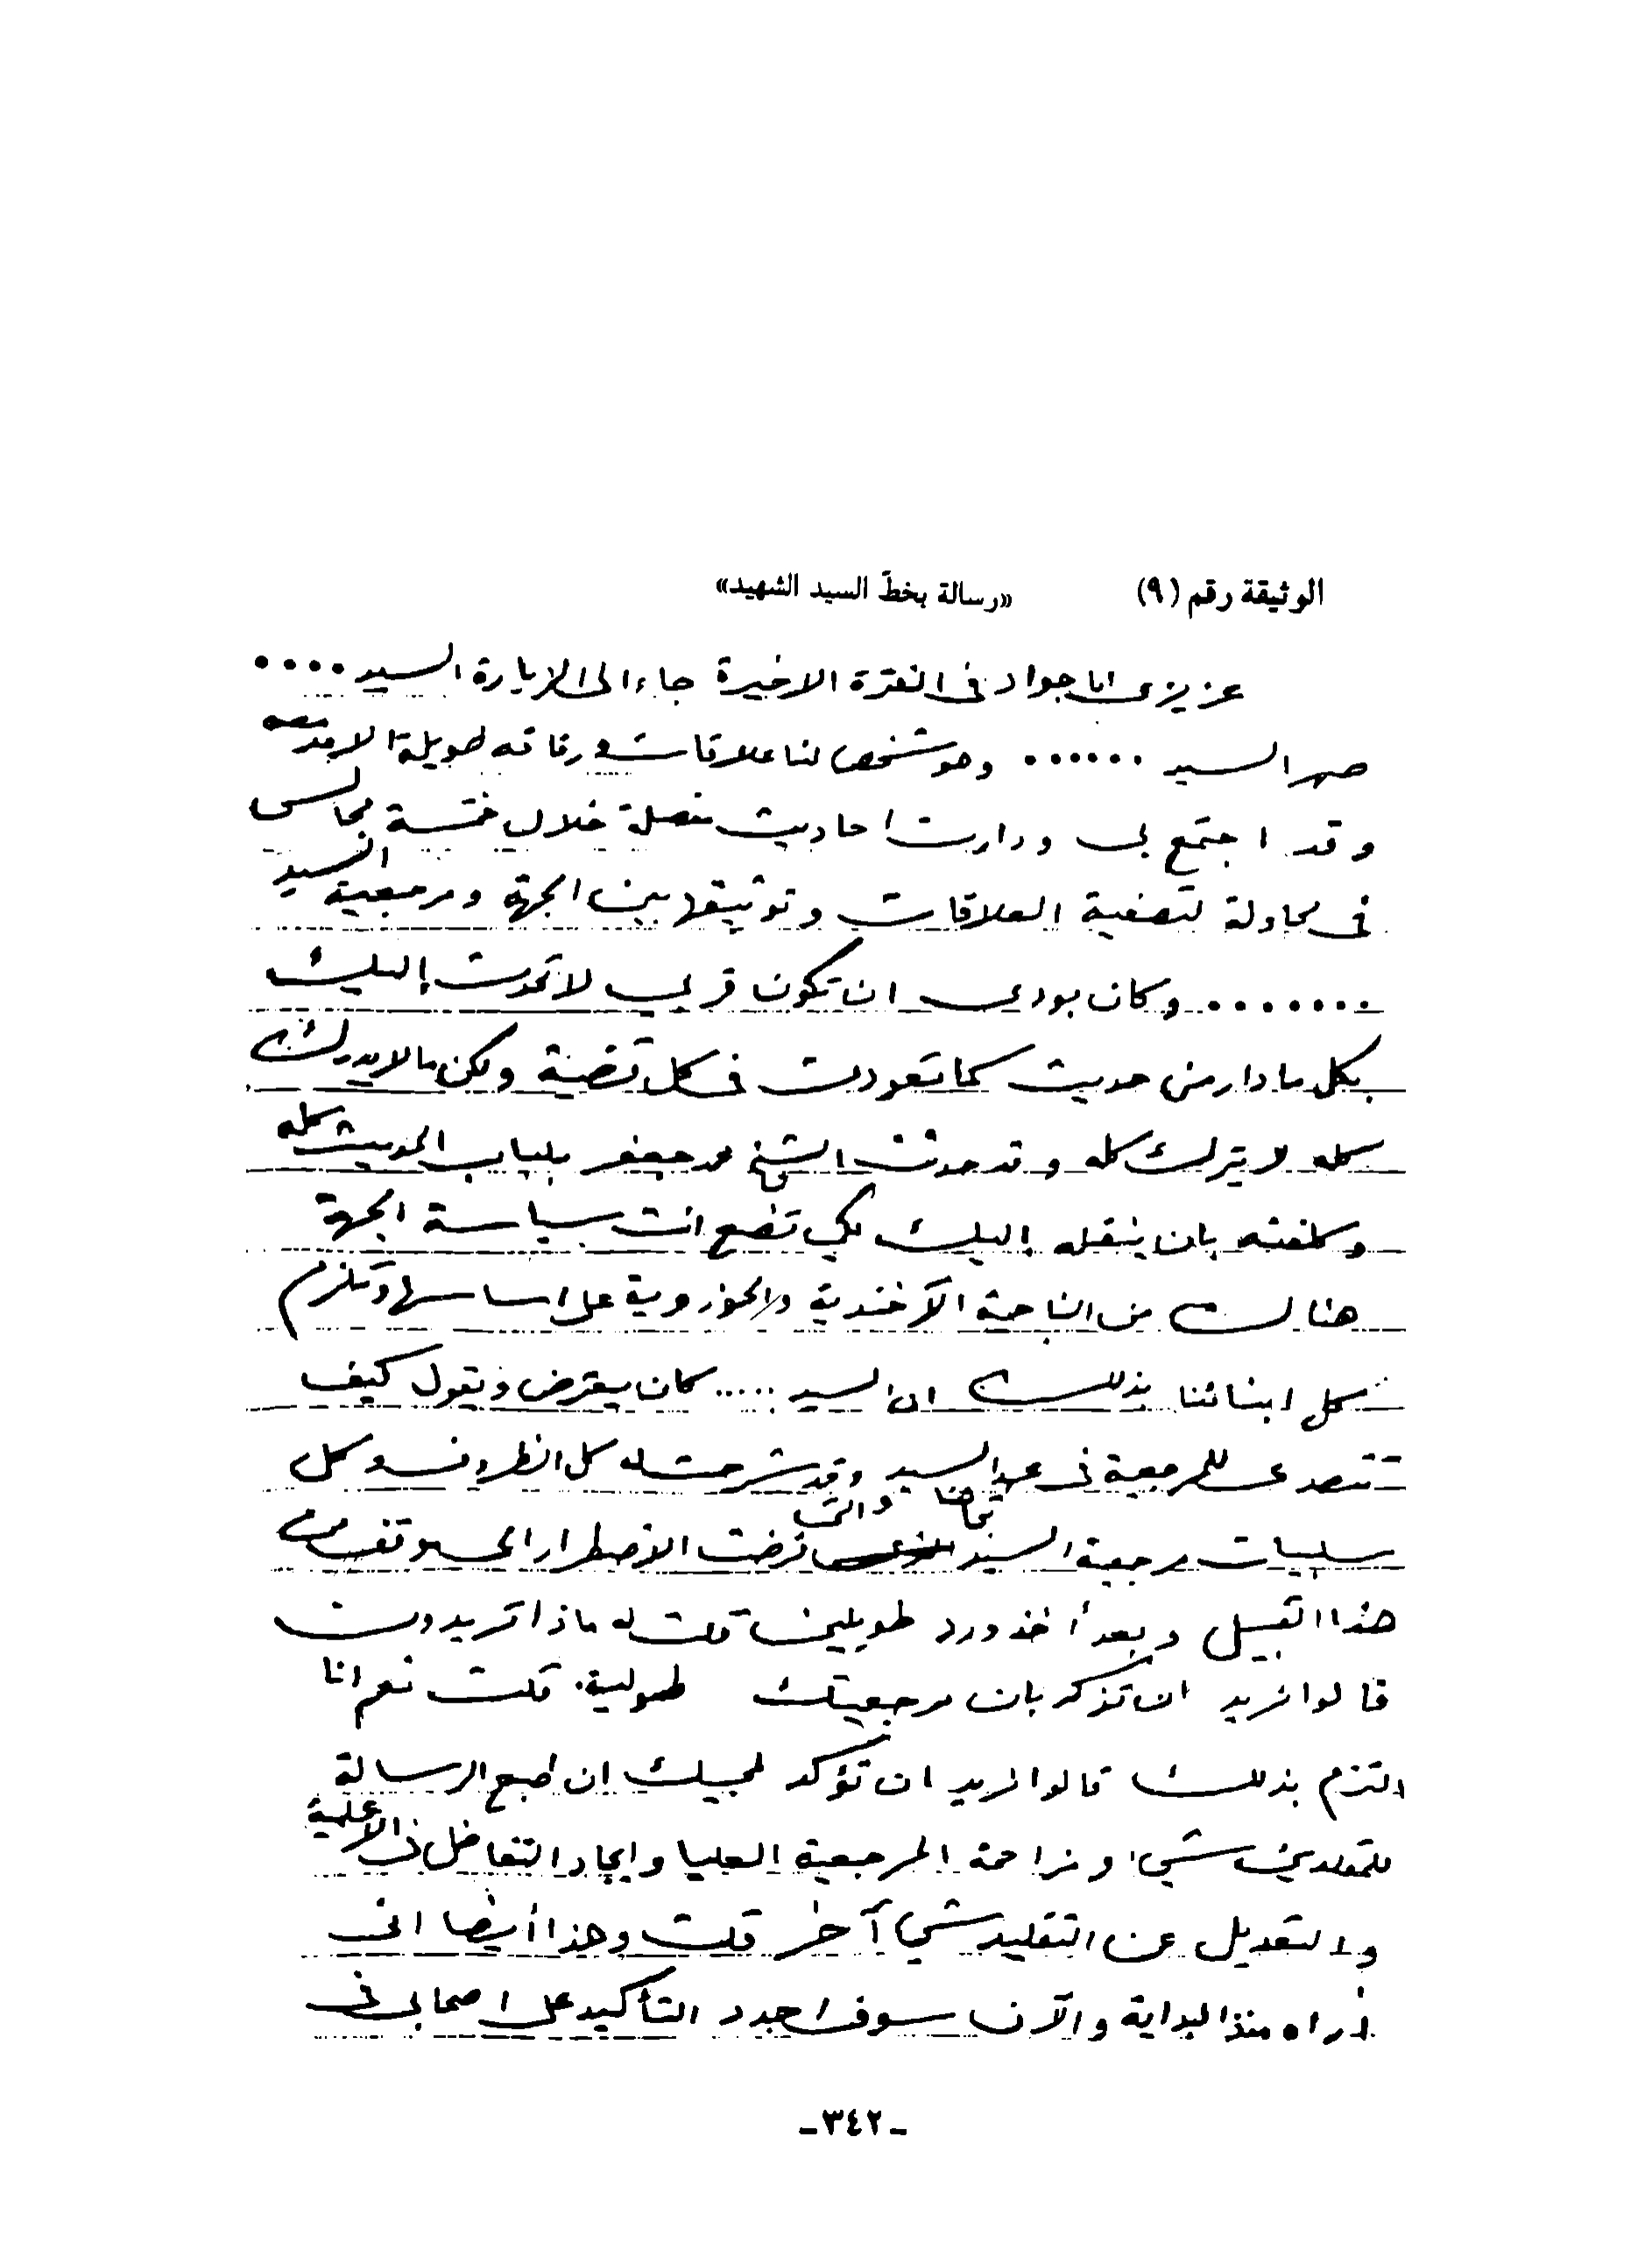 الوثيقة رقم (٩) «رسالة بخطّ السيد الشهيد»
عزيزي ابا جواد في الفترة الاخيرة جاء الى الزيارة السيد ....
صهر السيد ...... وهو شخص لنا علاقات ورفاقه طويلة الامد معه
وقد اجتمع بي ودارت احاديث مفصلة خلال خمسة مجالس
في محاولة لتصفية العلاقات وتوثيقها بين الجهة ومرجعية السيد
....... وكان بودي ان تكون قربي لاتحدث إليك
بكل ما دار من حديث كما تعودت في كل قضية ولكن ما لا يدرك
كله لا يترك كله وقد حدثت الشيخ محمد جعفر بلباب الحديث كله
وكلفته بان ينقله إليك لكي تضع انت سياسة الجهة
هنالك من الناحية الآخندية والحوزوية على اساسها وتلزم
كل ابنائنا بذلك ان السيد ..... كان يعترض ويقول كيف
تتصدى للمرجعية في عهد السيد وقد شرحت له كل الظروف وكل
سلبيات مرجعية السيد تجاهنا والتي فرضت الاضطرار الى موقف من
هذا القبيل وبعد أخذ ورد طويلين قلت له ماذا تريدون
قالوا نريد ان تذكر بان مرجعيتك طولية. قلت نعم انا
التزم بذلك قالوا نريد ان تؤكد لمحبيك ان طبع الرسالة
للمقلدين شيء ومزاحمة المرجعية العليا وايجاد التفاضل في الاعلمية
والتعديل عن التقليد شيء آخر قلت وهذا أيضا انى
أراه منذ البداية والآن سوف اجدد التأكيد على اصحابي في
-٣٤٢-